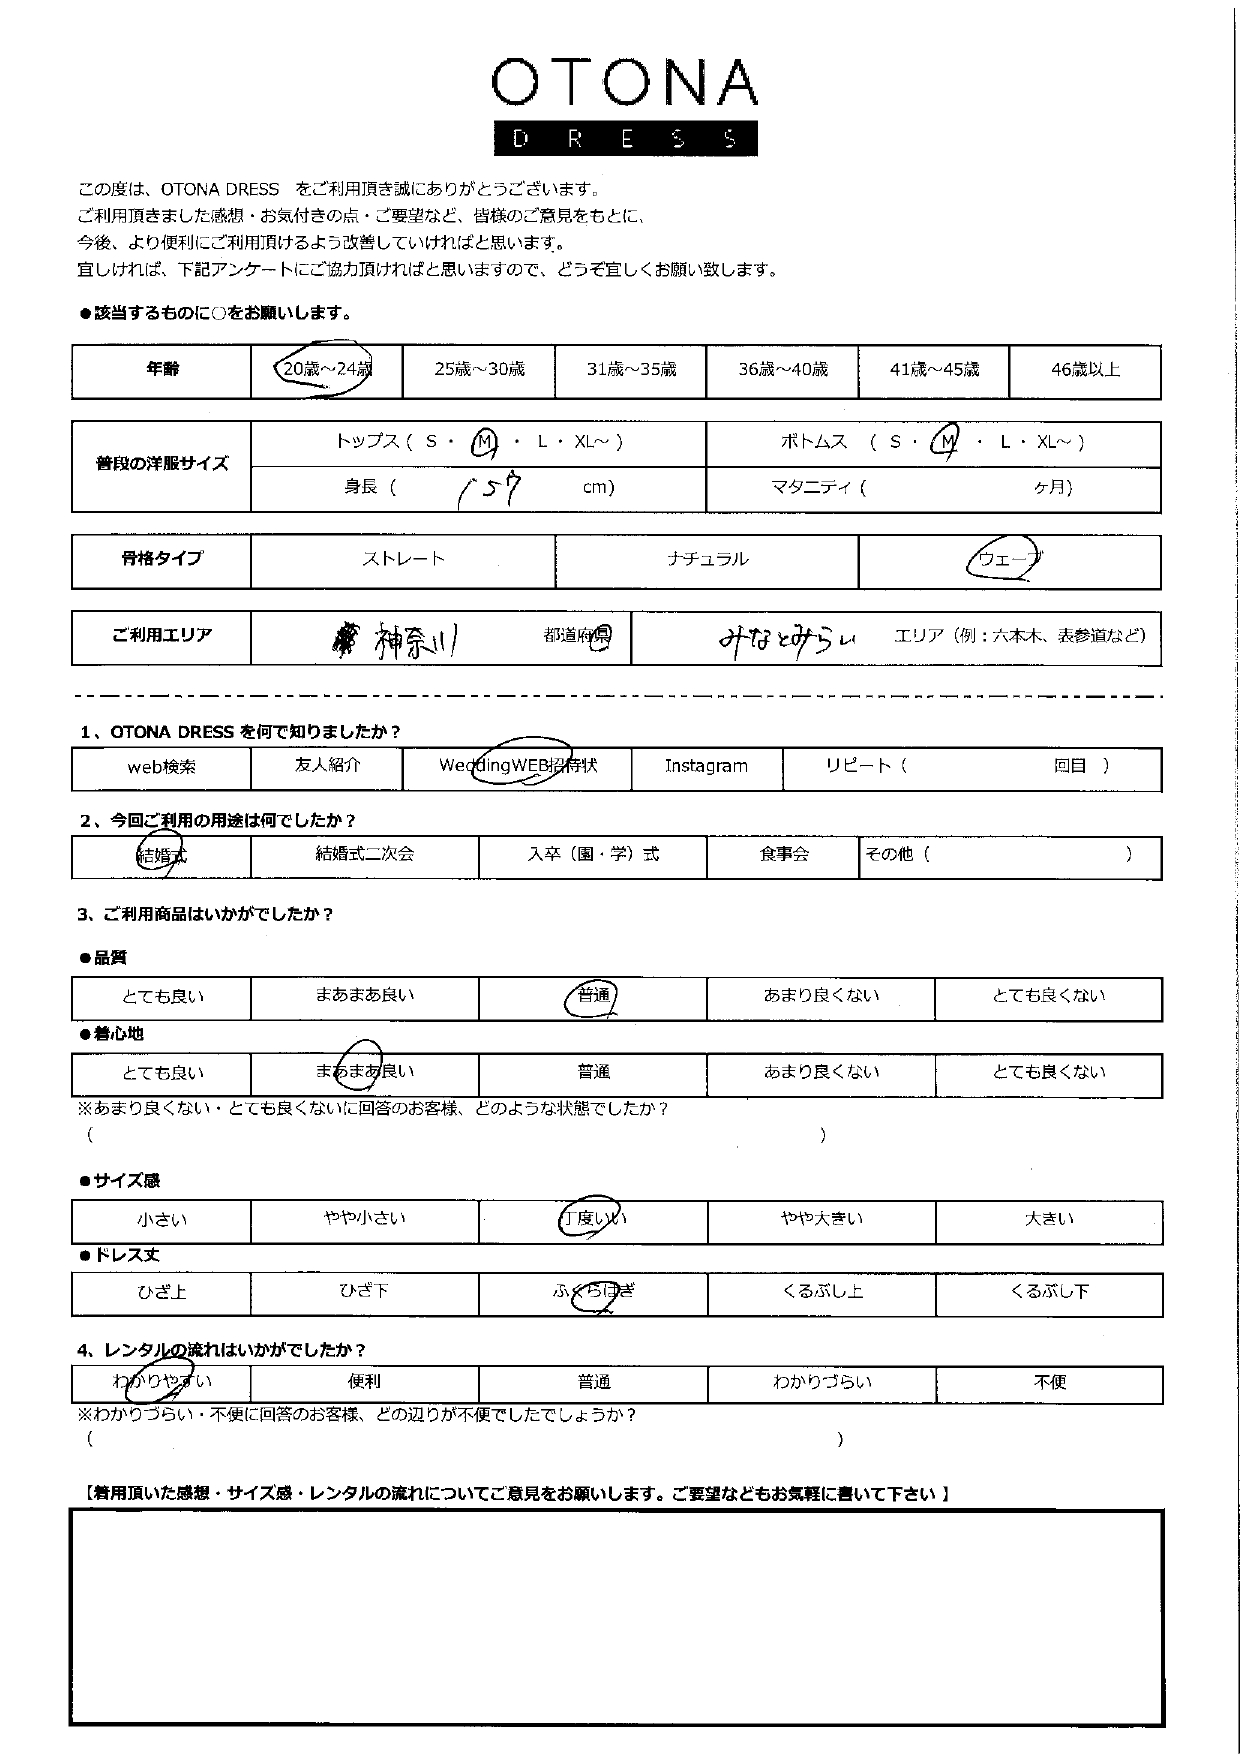 OTONA
DRESS
この度は、OTONA DRESS をご利用頂き誠にありがとうございます。
ご利用頂きました感想・お気付きの点・ご要望など、皆様のご意見をもとに、
今後、より便利にご利用頂けるよう改善していければと思います。
宜しければ、下記アンケートにご協力頂ければと思いますので、どうぞ宜しくお願い致します。
●該当するものに○をお願いします。
年齢 20歳～24歳 25歳～30歳 31歳～35歳 36歳～40歳 41歳～45歳 46歳以上
普段の洋服サイズ トップス ( S ・ M ・ L ・ XL～ ) ボトムス ( S ・ M ・ L ・ XL～ )
身長 ( 157 cm) マタニティ ( ヶ月)
骨格タイプ ストレート ナチュラル ウェーブ
ご利用エリア 神奈川 都道府県 みなとみらい エリア（例：六本木、表参道など）
1、OTONA DRESS を何で知りましたか？
web検索 友人紹介 WeddingWEB招待状 Instagram リピート ( 回目 )
2、今回ご利用の用途は何でしたか？
結婚式 結婚式二次会 入卒（園・学）式 食事会 その他 ( )
3、ご利用商品はいかがでしたか？
●品質
とても良い まあまあ良い 普通 あまり良くない とても良くない
●着心地
とても良い まあまあ良い 普通 あまり良くない とても良くない
※あまり良くない・とても良くないに回答のお客様、どのような状態でしたか？
( )
●サイズ感
小さい やや小さい 丁度いい やや大きい 大きい
●ドレス丈
ひざ上 ひざ下 ふくらはぎ くるぶし上 くるぶし下
4、レンタルの流れはいかがでしたか？
わかりやすい 便利 普通 わかりづらい 不便
※わかりづらい・不便に回答のお客様、どの辺りが不便でしたでしょうか？
( )
【着用頂いた感想・サイズ感・レンタルの流れについてご意見をお願いします。ご要望などもお気軽に書いて下さい 】